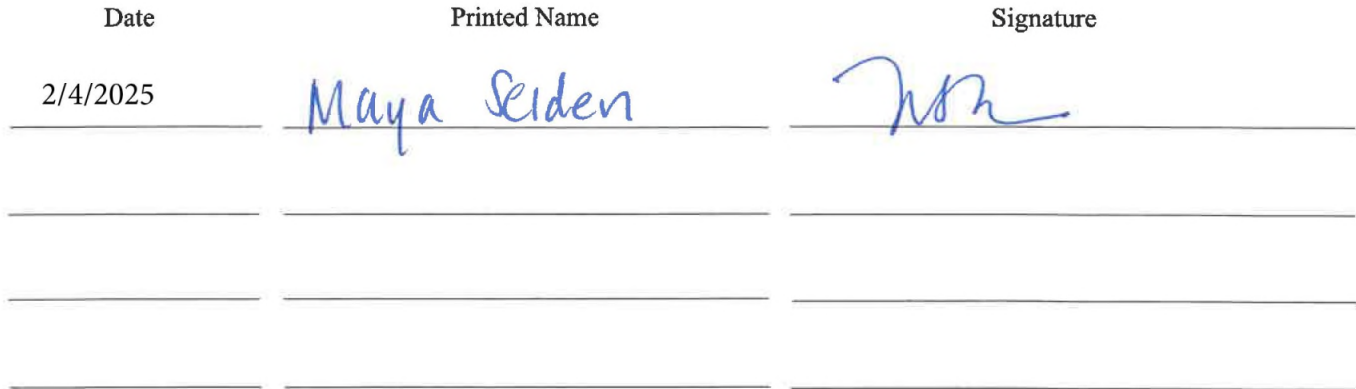 Date Printed Name Signature
2/4/2025 Maya Seiden